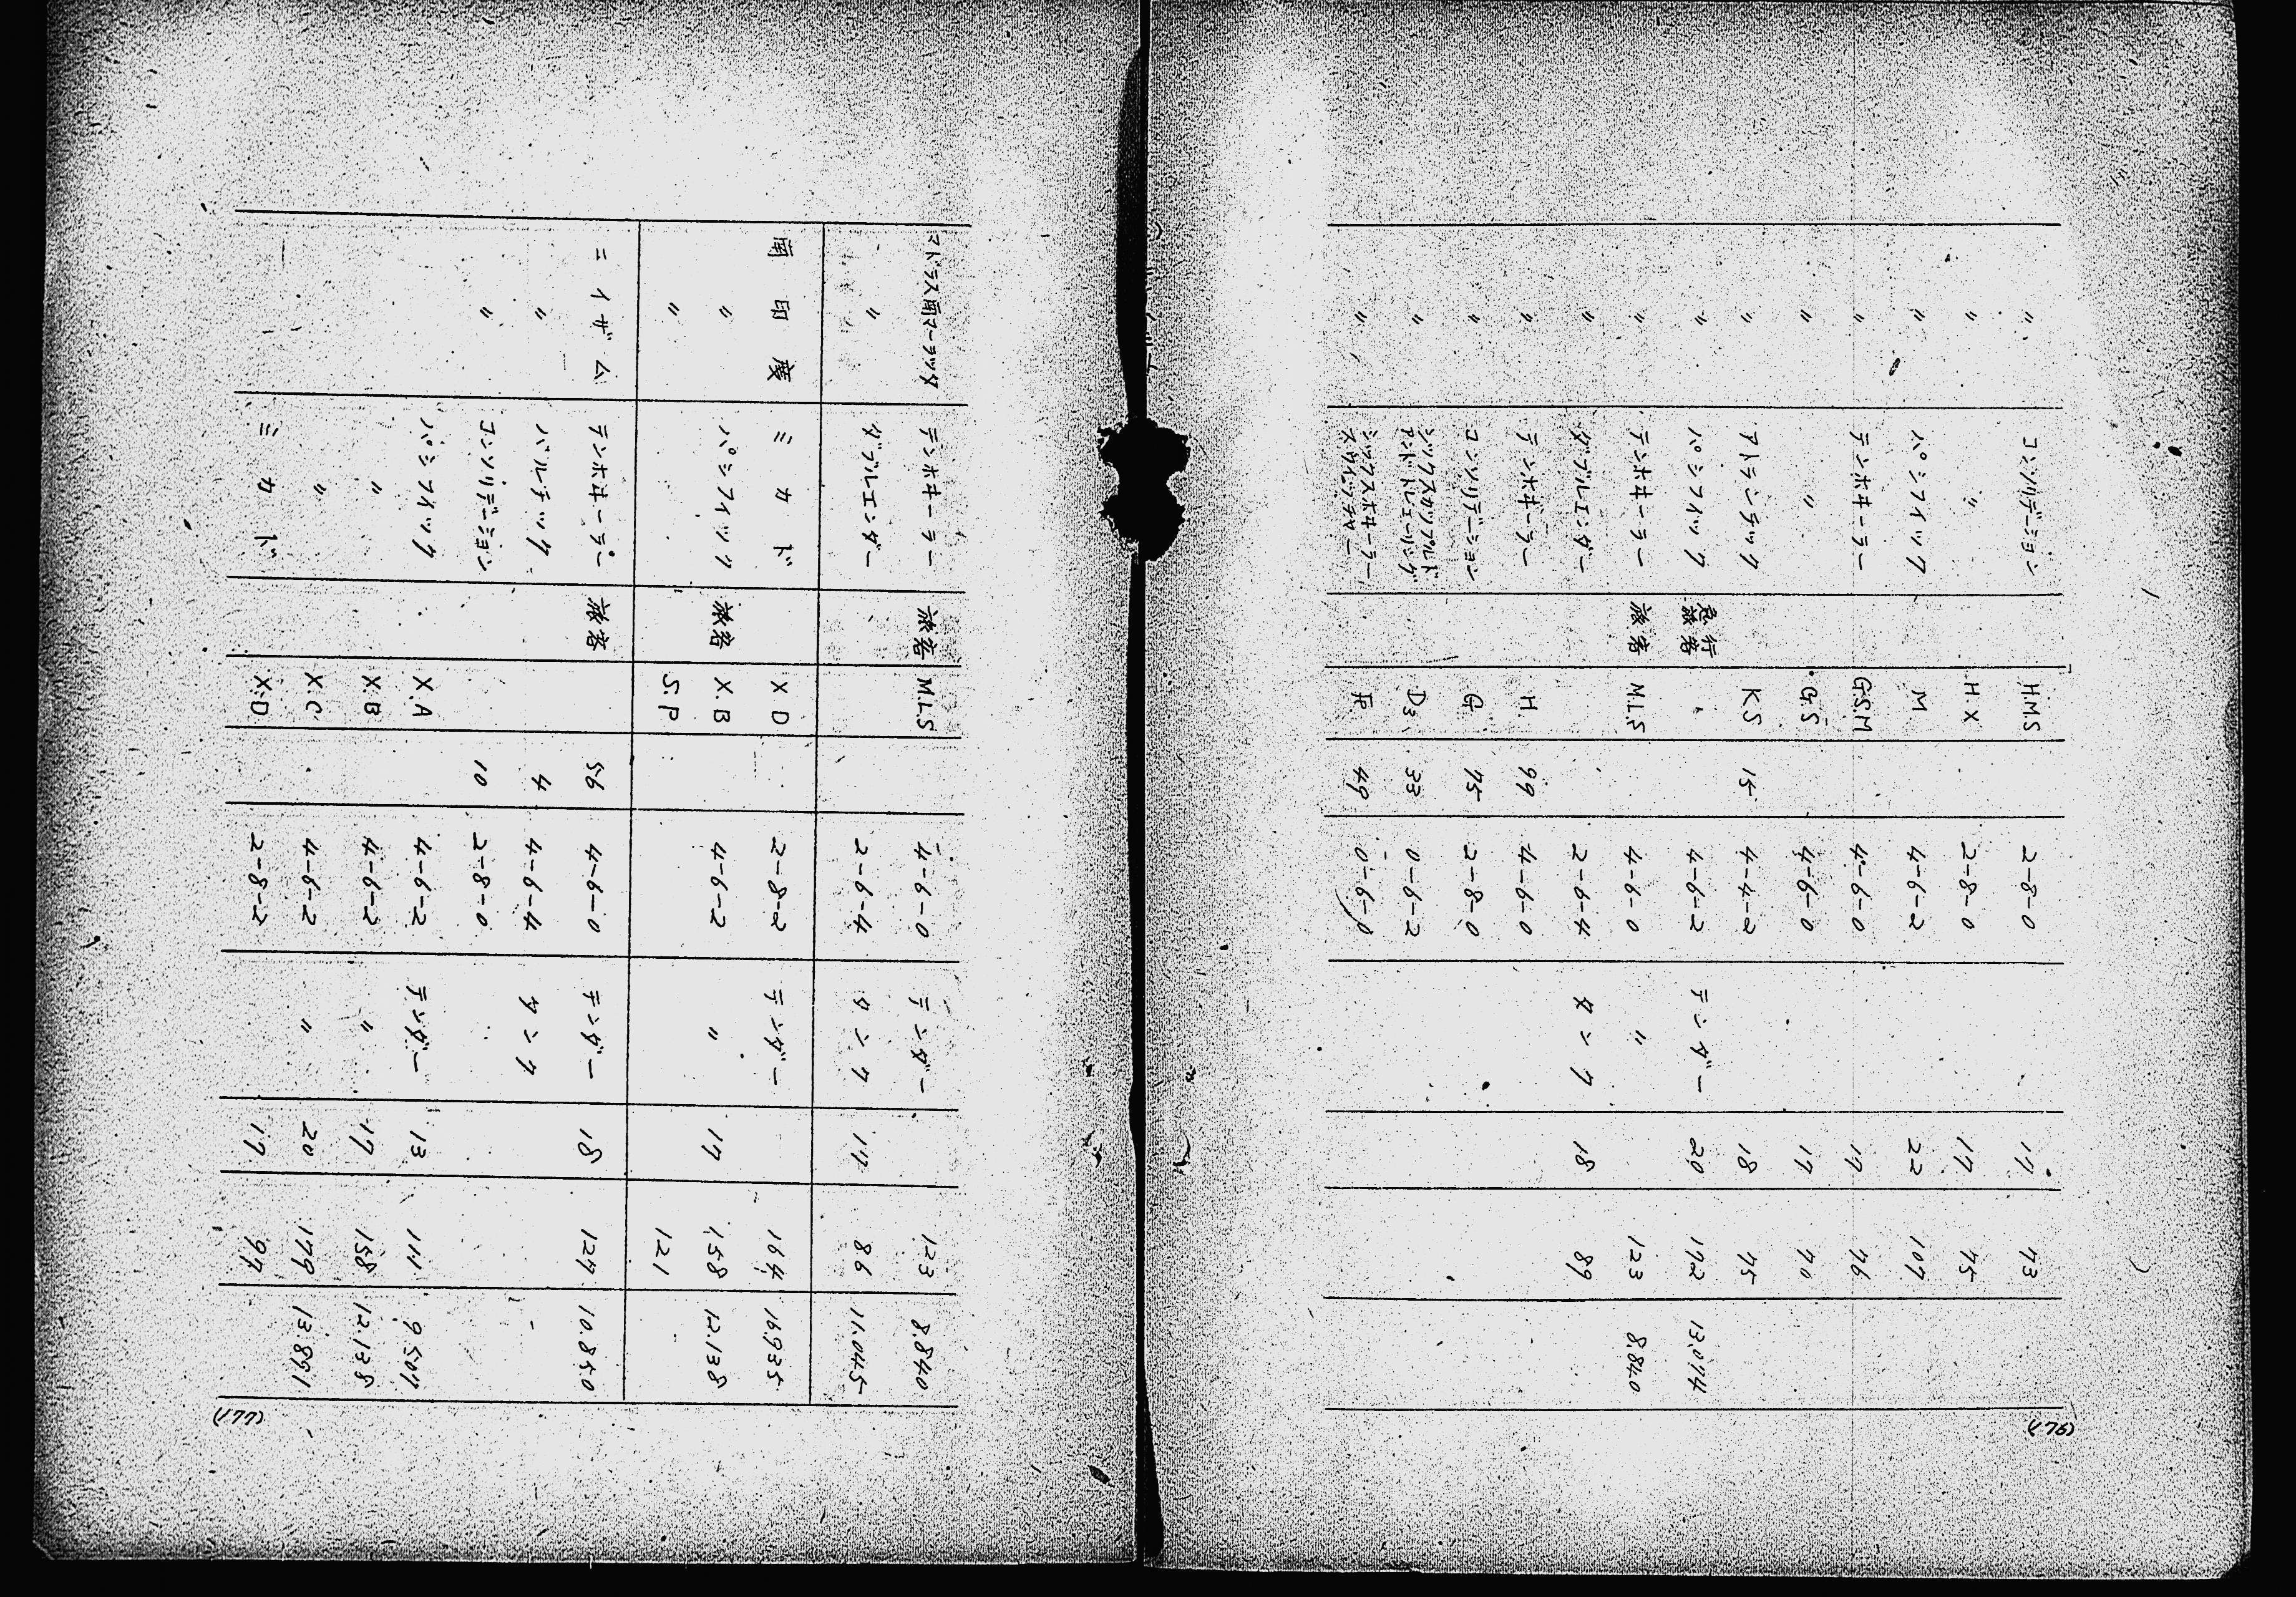 〃 コンソリデーション H.M.S 2-8-0 17 73
〃 〃 H.X 2-8-0 17 75
〃 パシフイツク M 4-6-2 22 107
〃 テンホヰーラー G.S.M 4-6-0 17 76
〃 〃 G.S 4-6-0 17 70
〃 アトランチツク K.S 15 4-4-2 18 75
〃 パシフイツク 急行旅客 4-6-2 テンダー 20 172 13.014
〃 テンホヰーラー 旅客 M.L.S 4-6-0 〃 123 8.840
〃 ダブルエンダー 2-6-4 タンク 18 89
〃 テンホヰーラー H 99 4-6-0
〃 コンソリデーション G 75 2-8-0
〃 シツクスカツプルド
アンド トレーリング D3 33 0-6-2
〃 シツクスホヰーラー
スウイツチヤー F 49 0-6-0
(176)
マドラス南マーラツタ テンホヰーラー 旅客 M.L.S 4-6-0 テンダー 123 8.840
〃 ダブルエンダー 2-6-4 タンク 17 86 11.045
南印度 ミカド X D 2-8-2 テンダー 164 16.935
〃 パシフイツク 旅客 X B 4-6-2 〃 17 158 12.138
〃 S.P 121
ニイザム テンホヰーラー 旅客 56 4-6-0 テンダー 18 127 10.850
〃 バルチツク 4 4-6-4 タンク
〃 コンソリデーション 10 2-8-0
パシフイツク X.A 4-6-2 テンダー 13 111 9.507
〃 X.B 4-6-2 〃 17 158 12.138
〃 X.C 4-6-2 〃 20 179 13.891
ミカド X.D 2-8-2 17 97
(177)